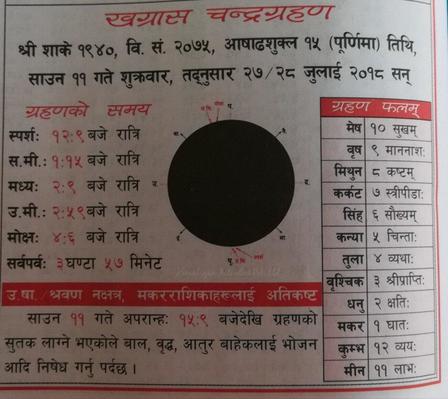 खग्रास चन्द्रग्रहण
श्री शाके १९४०, वि. सं. २०७५, आषाढशुक्ल १५ (पूर्णिमा) तिथि,
साउन ११ गते शुक्रवार, तद्नुसार २७/२८ जुलाई २०१८ सन्
ग्रहणको समय
स्पर्शः १२:९ बजे रात्रि
स.मी.: १:१५ बजे रात्रि
मध्यः २:९ बजे रात्रि
उ.मी.: २:५९ बजे रात्रि
मोक्षः ४:६ बजे रात्रि
सर्वपर्वः ३ घण्टा ५७ मिनेट
ग्रहण फलम्
मेष १० सुखम्
वृष ९ माननाशः
मिथुन ८ कष्टम्
कर्कट ७ स्त्रीपीडाः
सिंह ६ सौख्यम्
कन्या ५ चिन्ताः
तुला ४ व्यथाः
वृश्चिक ३ श्रीप्राप्तिः
धनु २ क्षतिः
मकर १ घातः
कुम्भ १२ व्ययः
मीन ११ लाभः
उ.षा./श्रवण नक्षत्र, मकरराशिकाहरूलाई अतिकष्ट
साउन ११ गते अपरान्हः १५:९ बजेदेखि ग्रहणको
सुतक लाग्ने भएकोले बाल, वृद्ध, आतुर बाहेकलाई भोजन
आदि निषेध गर्नु पर्दछ ।